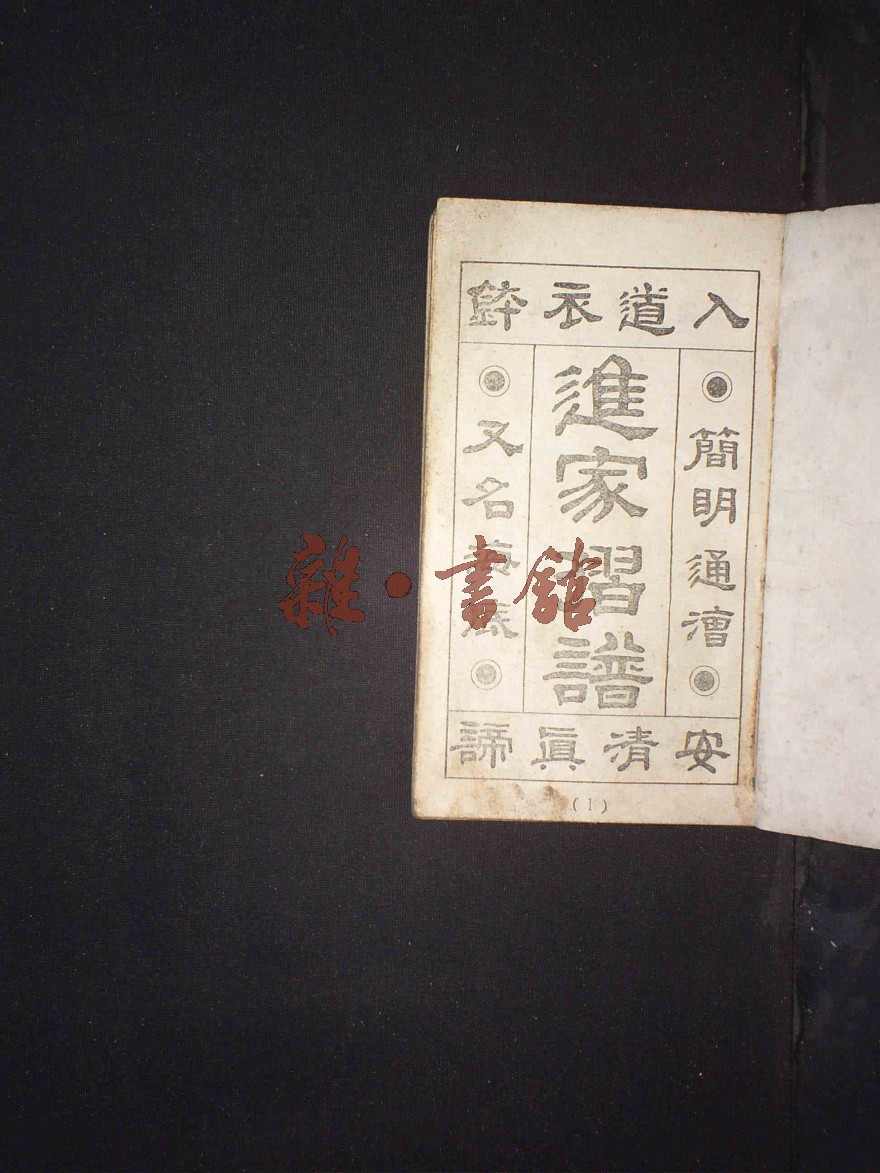 入道衣鉢
簡明通漕
進家摺譜
又名海底
安清眞諦
(1)
雜·書館